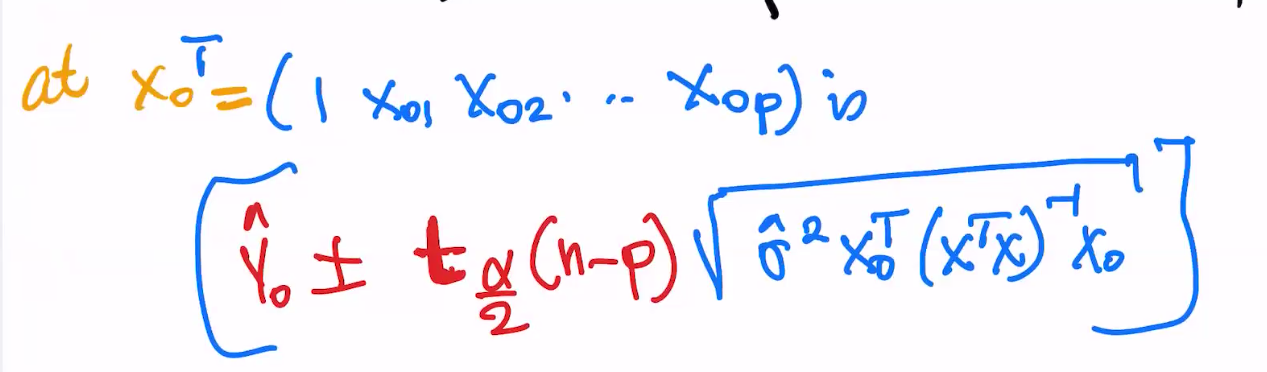 at x₀ᵀ = (1 x₀₁ x₀₂ · · · x₀p) is
[Ŷ₀ ± t_{α/2} (n-p) √(σ̂² x₀ᵀ (xᵀx)⁻¹ x₀)]